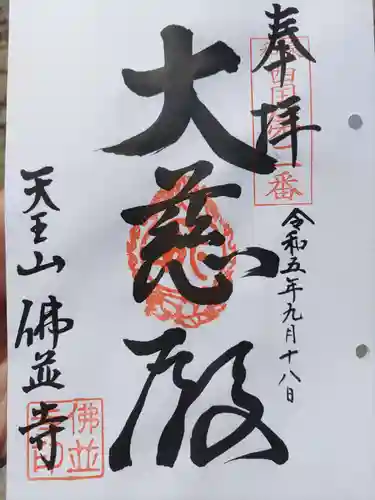 奉拝
令和五年九月十八日
大慈殿
天王山 佛並寺
佛並